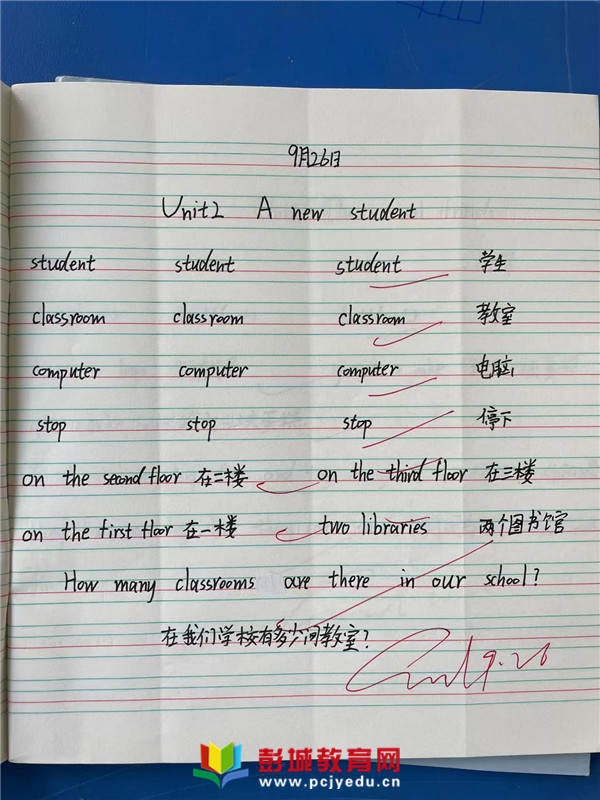 9月26日
Unit2 A new student
student student student 学生
classroom classroom classroom 教室
computer computer computer 电脑
stop stop stop 停下
on the second floor 在二楼 on the third floor 在三楼
on the first floor 在一楼 two libraries 两个图书馆
How many classrooms are there in our school?
在我们学校有多少间教室?
9.26
彭城教育网
www.pcjyedu.cn